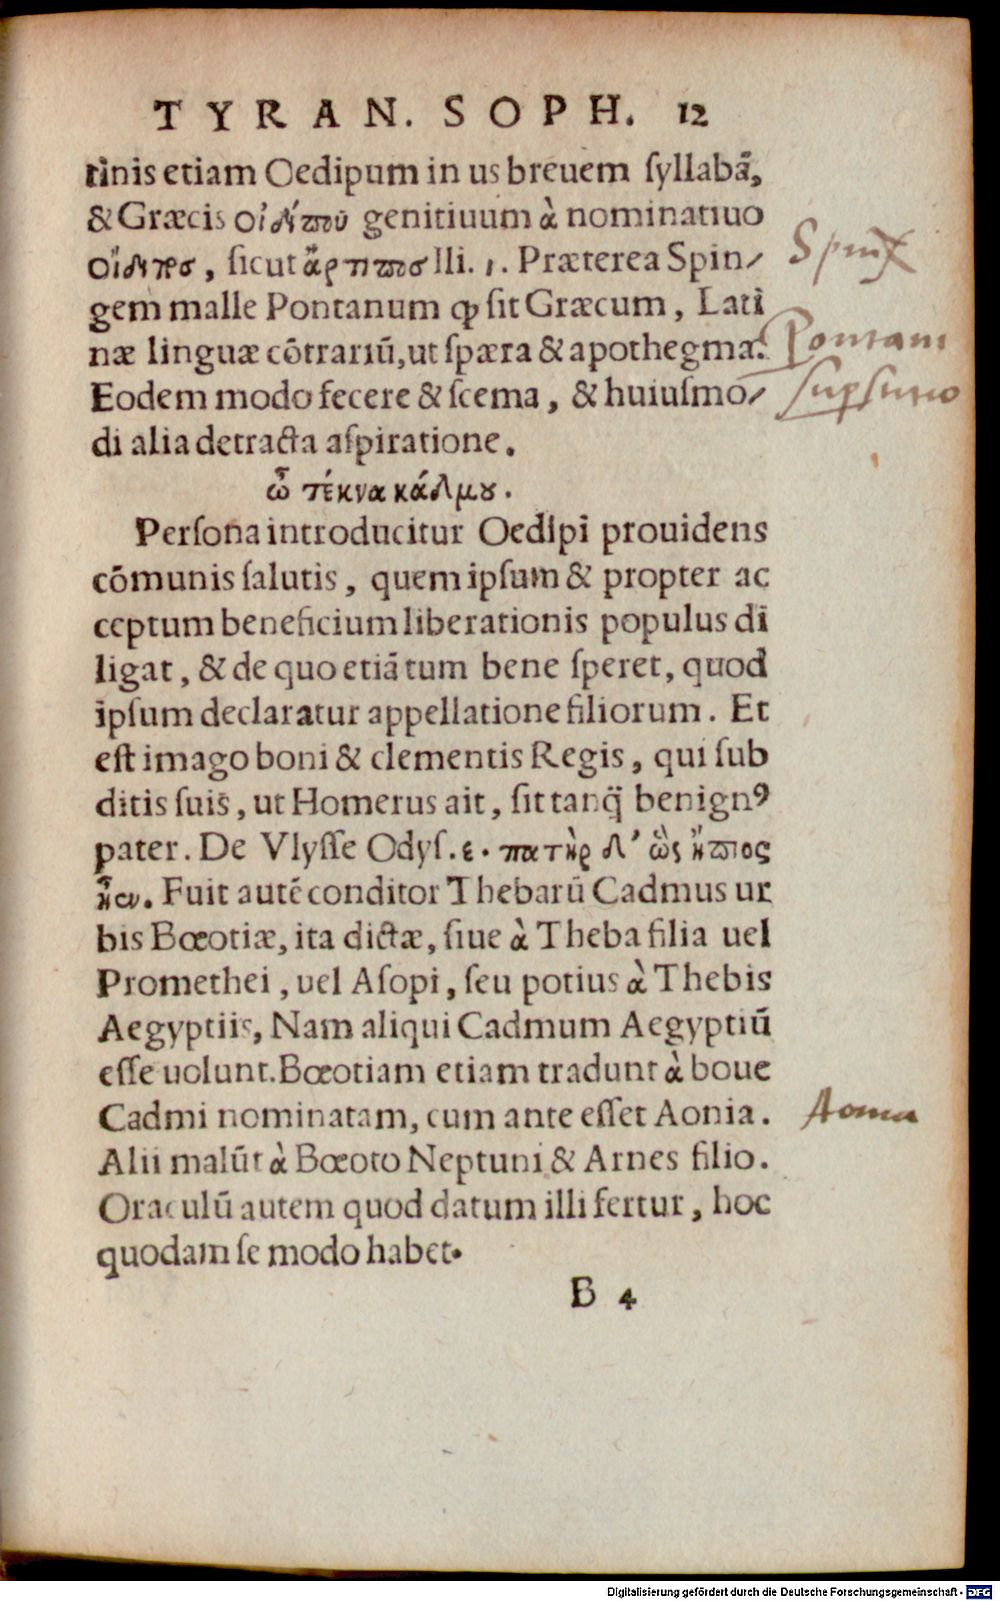 TYRAN. SOPH. 12
tinis etiam Oedipum in us breuem ſyllabā,
& Græcis οἰδίπου genitiuum à nominatiuo
οἴδιπος, ſicut ἄρτιπος Ili. ι. Præterea Spin-
gem malle Pontanum ꝙ ſit Græcum, Lati
næ linguæ cōtrariū, ut ſpæra & apothegma.
Eodem modo fecere & ſcema, & huiuſmo-
di alia detracta aſpiratione.
ὦ τέκνα κάδμου.
Perſona introducitur Oedipi prouidens
cōmunis ſalutis, quem ipſum & propter ac
ceptum beneficium liberationis populus di
ligat, & de quo etiā tum bene ſperet, quod
ipſum declaratur appellatione filiorum. Et
eſt imago boni & clementis Regis, qui ſub
ditis ſuis, ut Homerus ait, ſit tanq̄ benignꝰ
pater. De Vlyſſe Odyſ. ε. πατὴρ δ' ὣς ἤπιος
ἦεν. Fuit autē conditor Thebarū Cadmus ur
bis Bœotiæ, ita dictæ, ſiue à Theba filia uel
Promethei, uel Aſopi, ſeu potius à Thebis
Aegyptiis, Nam aliqui Cadmum Aegyptiū
eſſe uolunt. Bœotiam etiam tradunt à boue
Cadmi nominatam, cum ante eſſet Aonia.
Alii malūt à Bœoto Neptuni & Arnes filio.
Oraculū autem quod datum illi fertur, hoc
quodam ſe modo habet.
B 4
Spinx
Pontani
Aonia
Digitalisierung gefördert durch die Deutsche Forschungsgemeinschaft - DFG